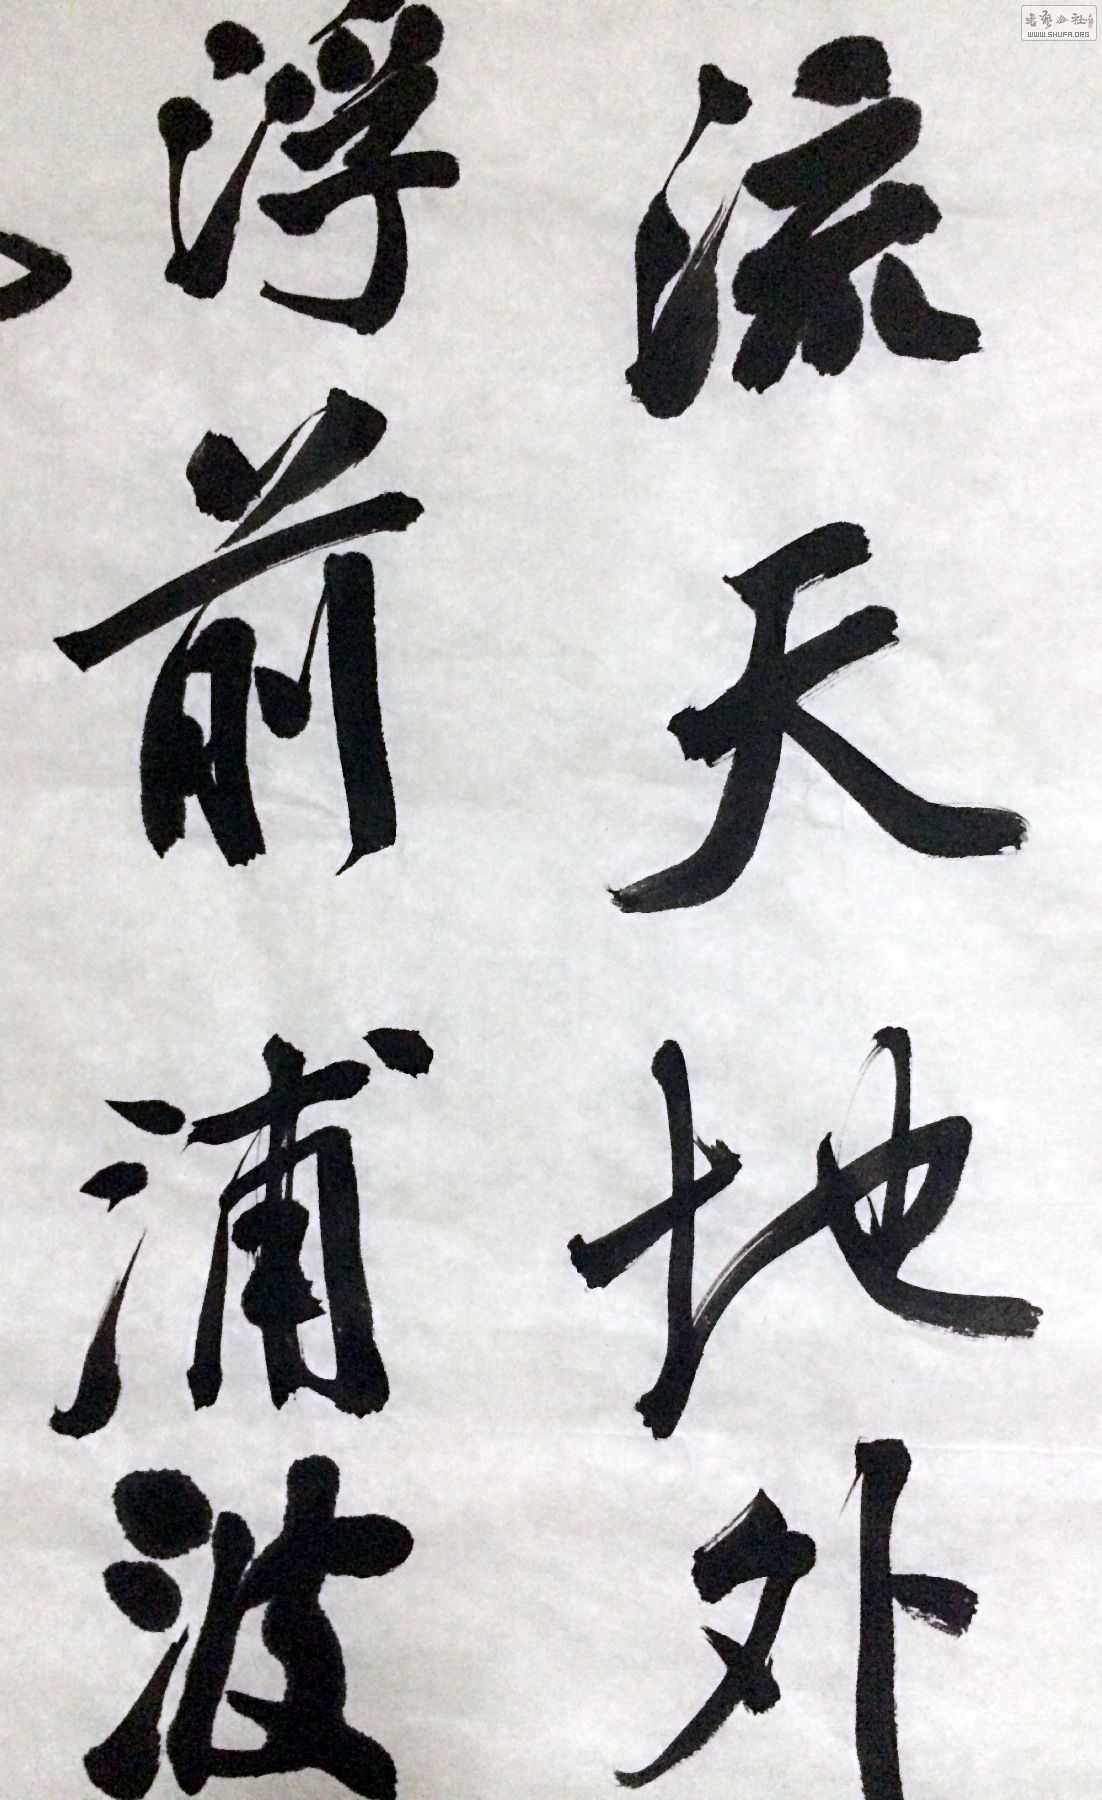 流天地外
浮前浦波
书艺公社
WWW.SHUFA.ORG